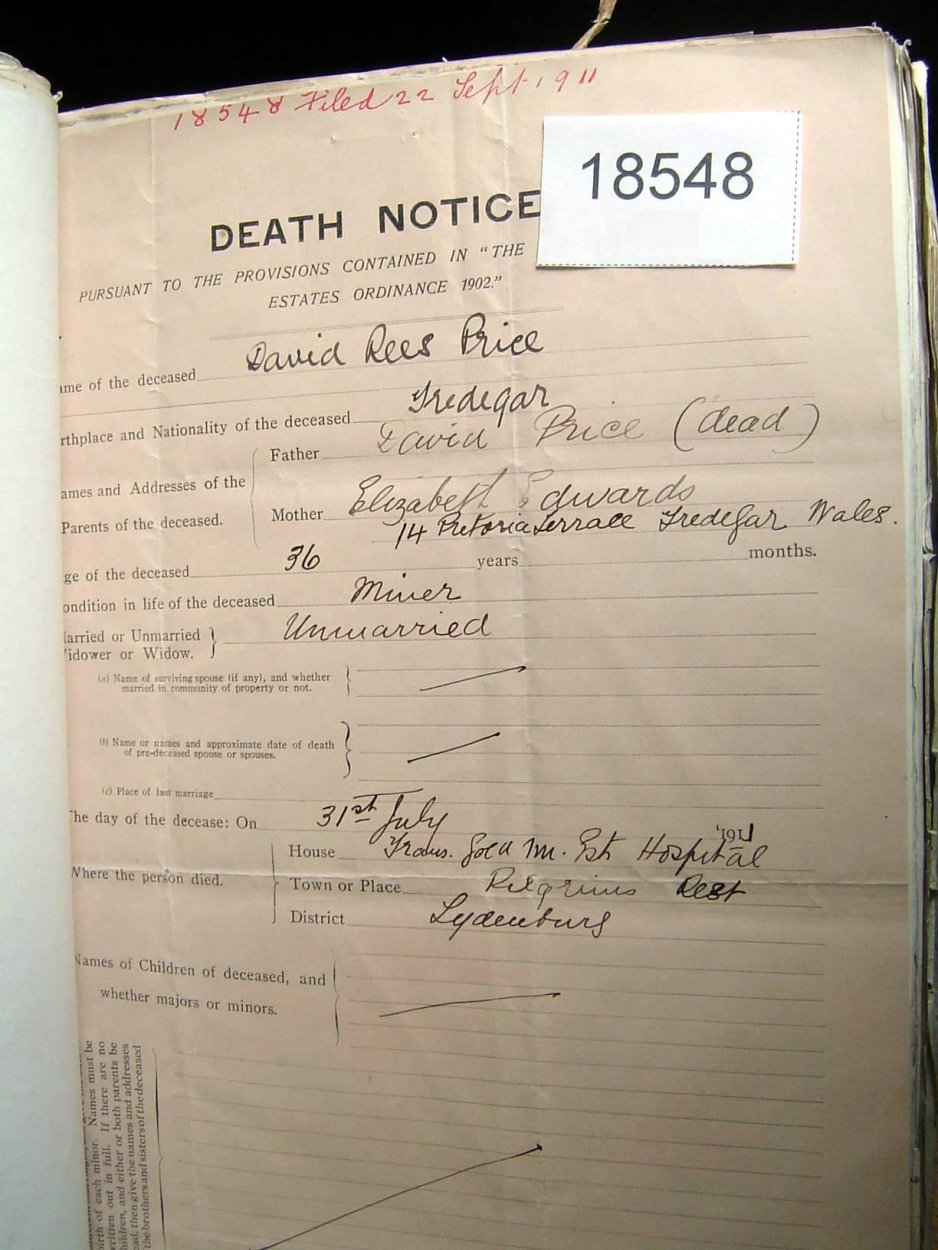 18548 Filed 22 Sept 1911
18548
DEATH NOTICE
PURSUANT TO THE PROVISIONS CONTAINED IN "THE
ESTATES ORDINANCE 1902."
ame of the deceased David Rees Price
rthplace and Nationality of the deceased Tredegar
Father David Price (dead)
ames and Addresses of the
Parents of the deceased.
Mother Elizabeth Edwards
14 Pretoria Terrace Tredegar Wales.
ge of the deceased 36 years months.
ondition in life of the deceased Miner
arried or Unmarried
idower or Widow.
Unmarried
(a) Name of surviving spouse (if any), and whether
married in community of property or not.
(b) Name or names and approximate date of death
of pre-deceased spouse or spouses.
(c) Place of last marriage
The day of the decease: On 31st July 1911
House Trans. Gold M. Est Hospital
Where the person died.
Town or Place Pilgrims Rest
District Lydenburg
Names of Children of deceased, and
whether majors or minors.
birth of each minor. Names must be
written out in full. If there are no
children, and either or both parents be
ad, then give the names and addresses
the brothers and sisters of the deceased